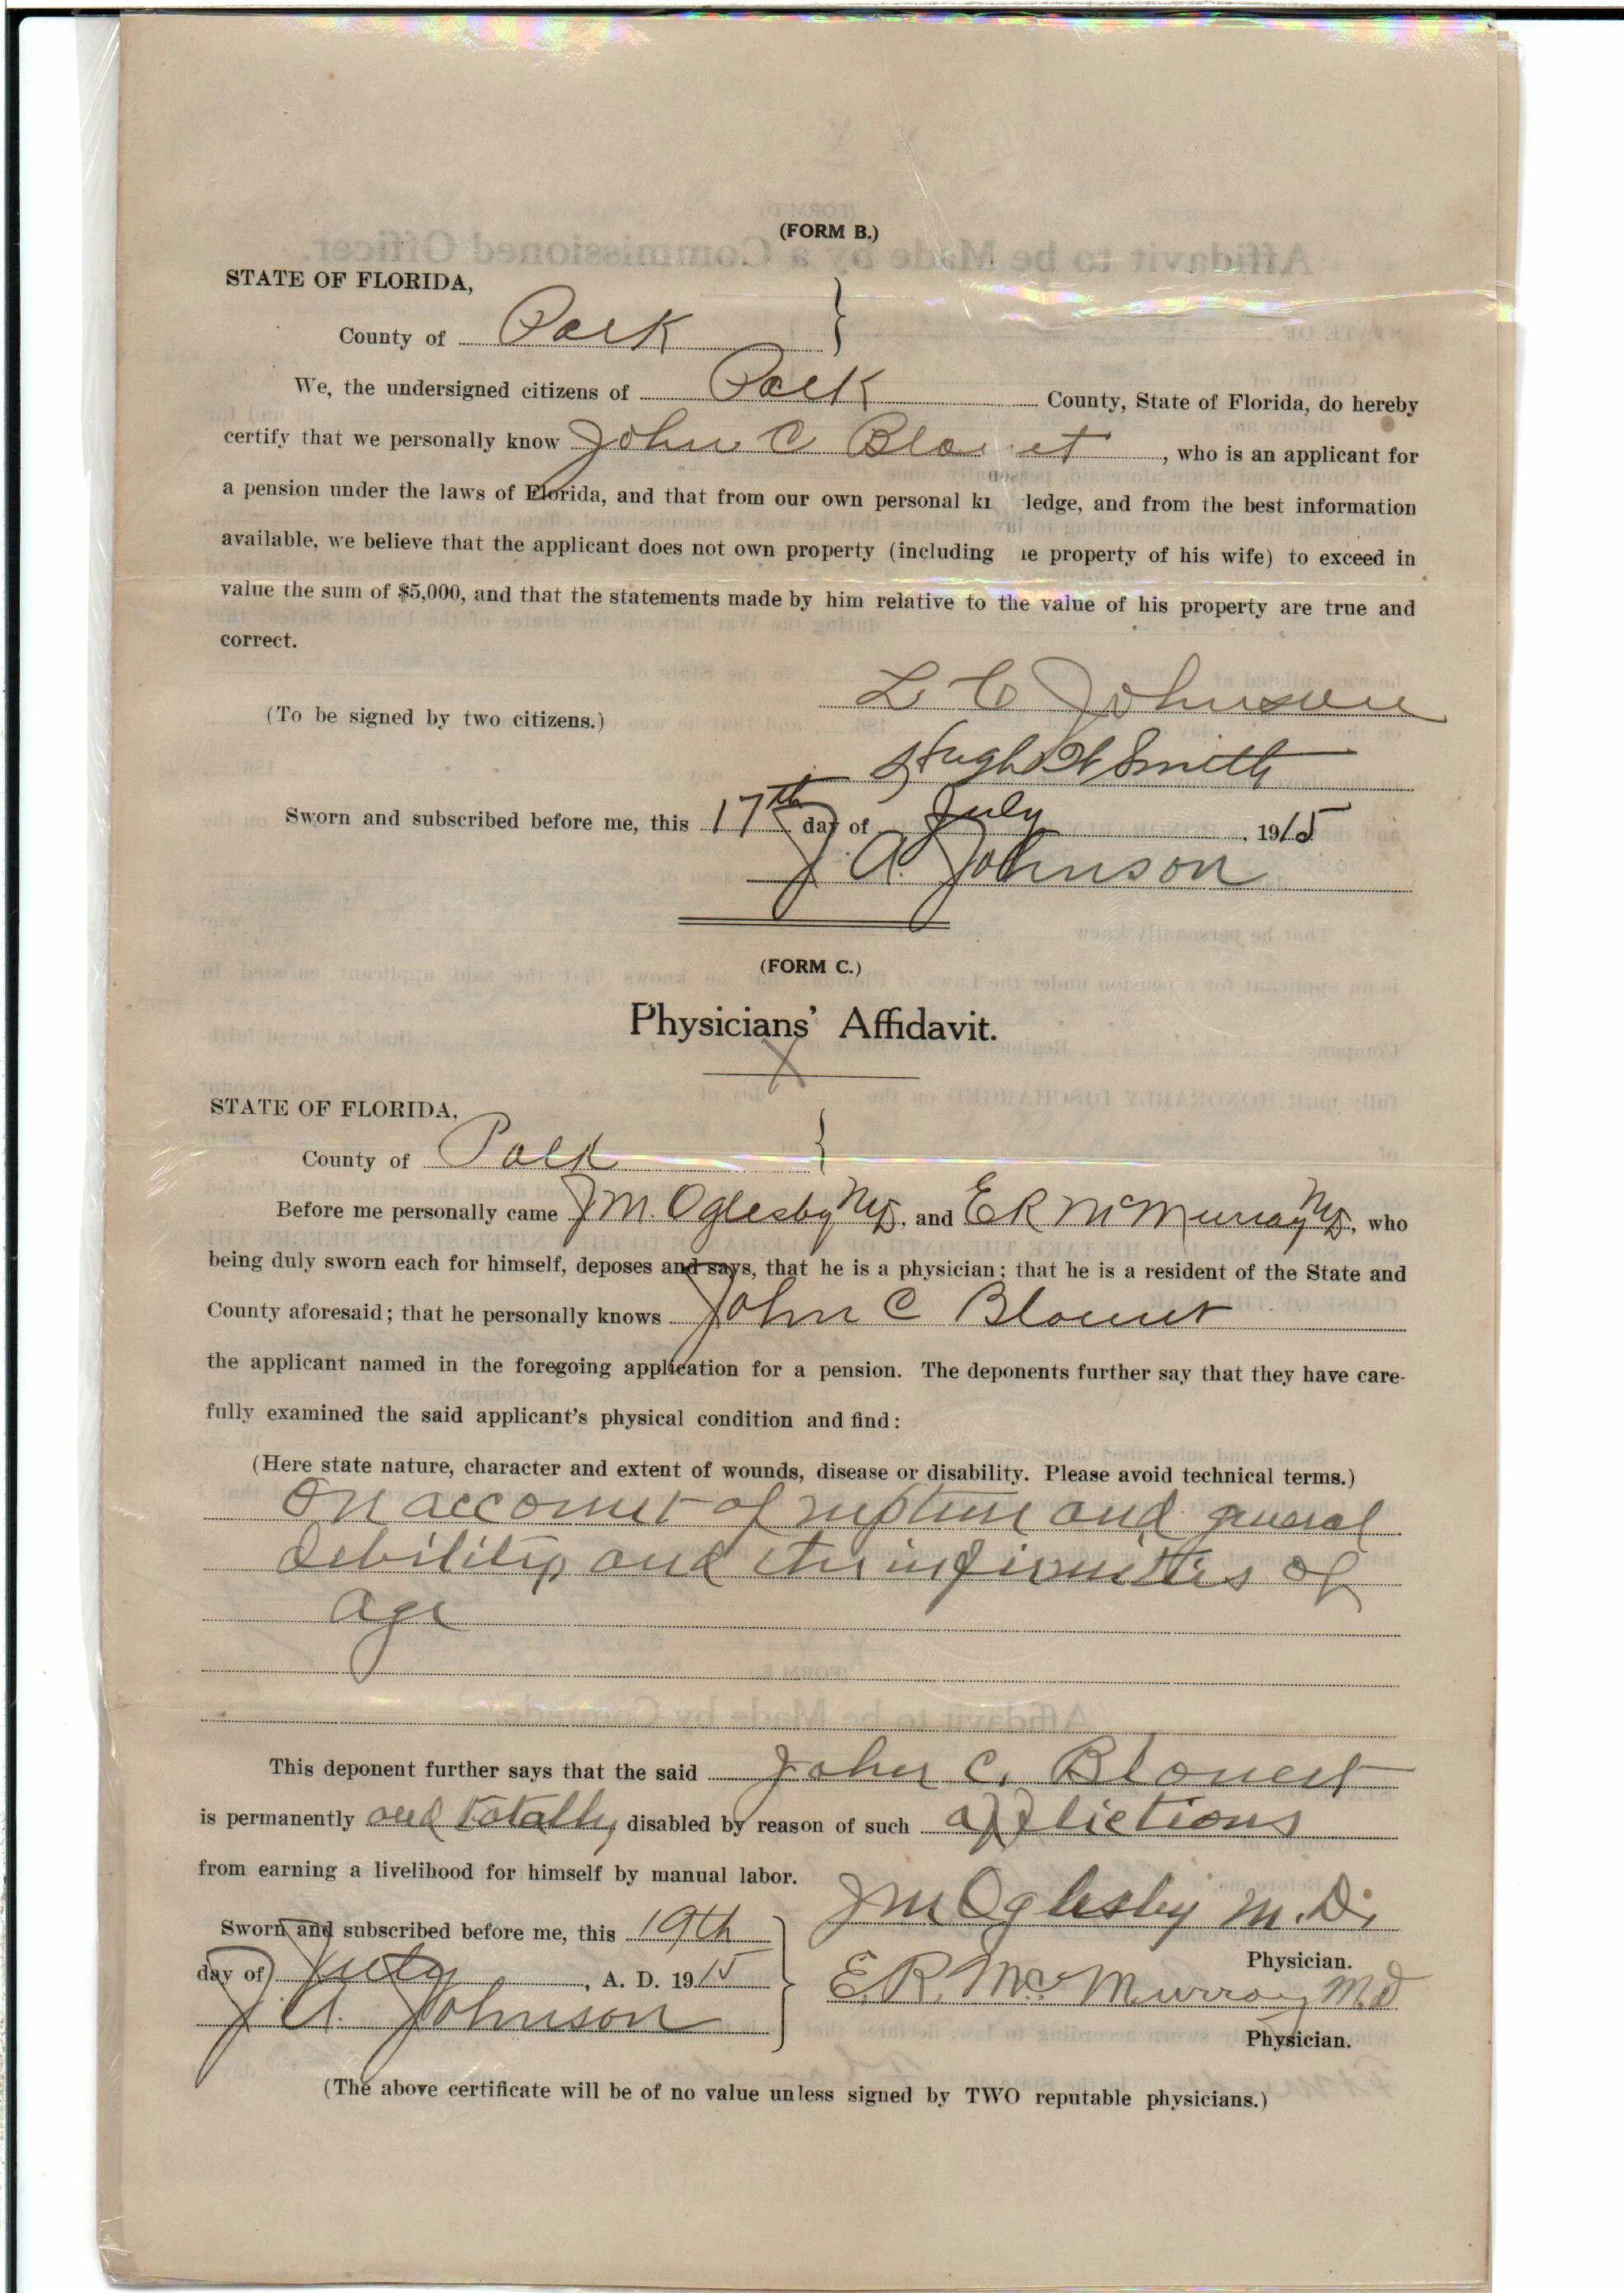 (FORM B.)
STATE OF FLORIDA,
County of Polk
We, the undersigned citizens of Polk County, State of Florida, do hereby
certify that we personally know John C Blo et, who is an applicant for
a pension under the laws of Florida, and that from our own personal ledge, and from the best information
available, we believe that the applicant does not own property (including property of his wife) to exceed in
value the sum of $5,000, and that the statements made by him relative to the value of his property are true and
correct.
L C Johnson
(To be signed by two citizens.)
Hugh H Smith
Sworn and subscribed before me, this 17th day of July, 1915
J. A. Johnson
(FORM C.)
Physicians' Affidavit.
STATE OF FLORIDA,
County of Polk
Before me personally came J M. Oglesby MD, and E R McMurray MD, who
being duly sworn each for himself, deposes and says, that he is a physician; that he is a resident of the State and
County aforesaid; that he personally knows John C Blount
the applicant named in the foregoing application for a pension. The deponents further say that they have care-
fully examined the said applicant's physical condition and find:
(Here state nature, character and extent of wounds, disease or disability. Please avoid technical terms.)
On account of rupture and general
debility and the infirmities of
age
This deponent further says that the said John C. Blount
is permanently and totally disabled by reason of such afflictions
from earning a livelihood for himself by manual labor.
J M Oglesby M.D.
Sworn and subscribed before me, this 19th
Physician.
day of July, A. D. 1915
E. R. McMurray M.D
J A. Johnson
Physician.
(The above certificate will be of no value unless signed by TWO reputable physicians.)